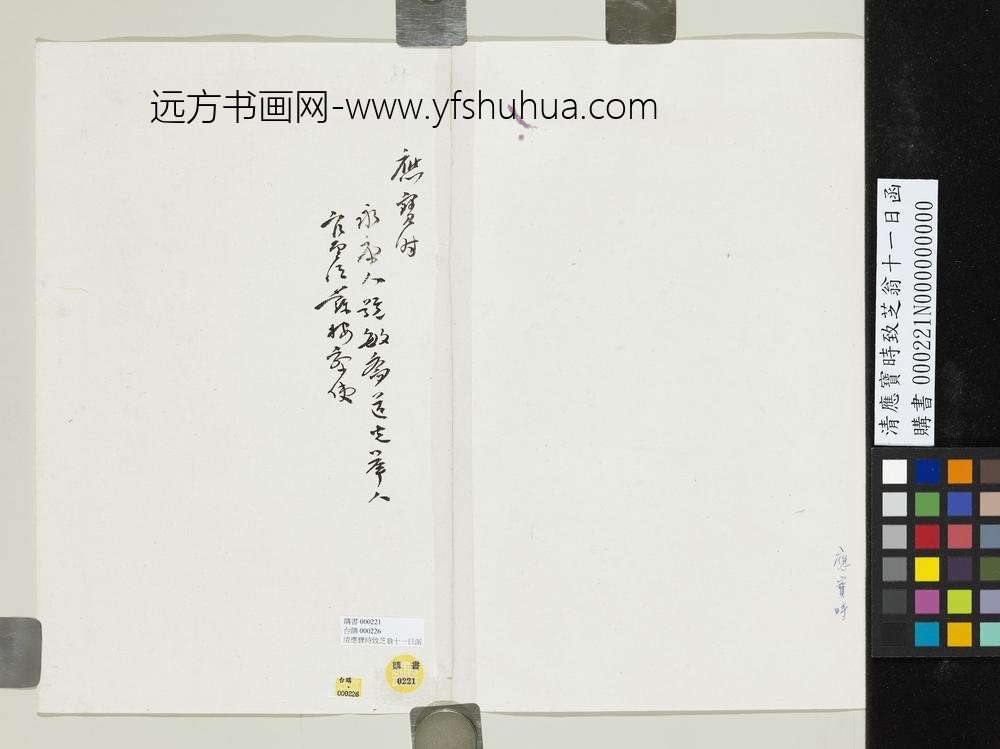 远方书画网-www.yfshuhua.com
應寶时
永康人號敏齋道光舉人
官至江蘇按察使
清應寶時致芝翁十一日函
購書 000221N000000000
應寶時
購書 000221
台購 000226
清應寶時致芝翁十一日函
購書
0221
台購
000226